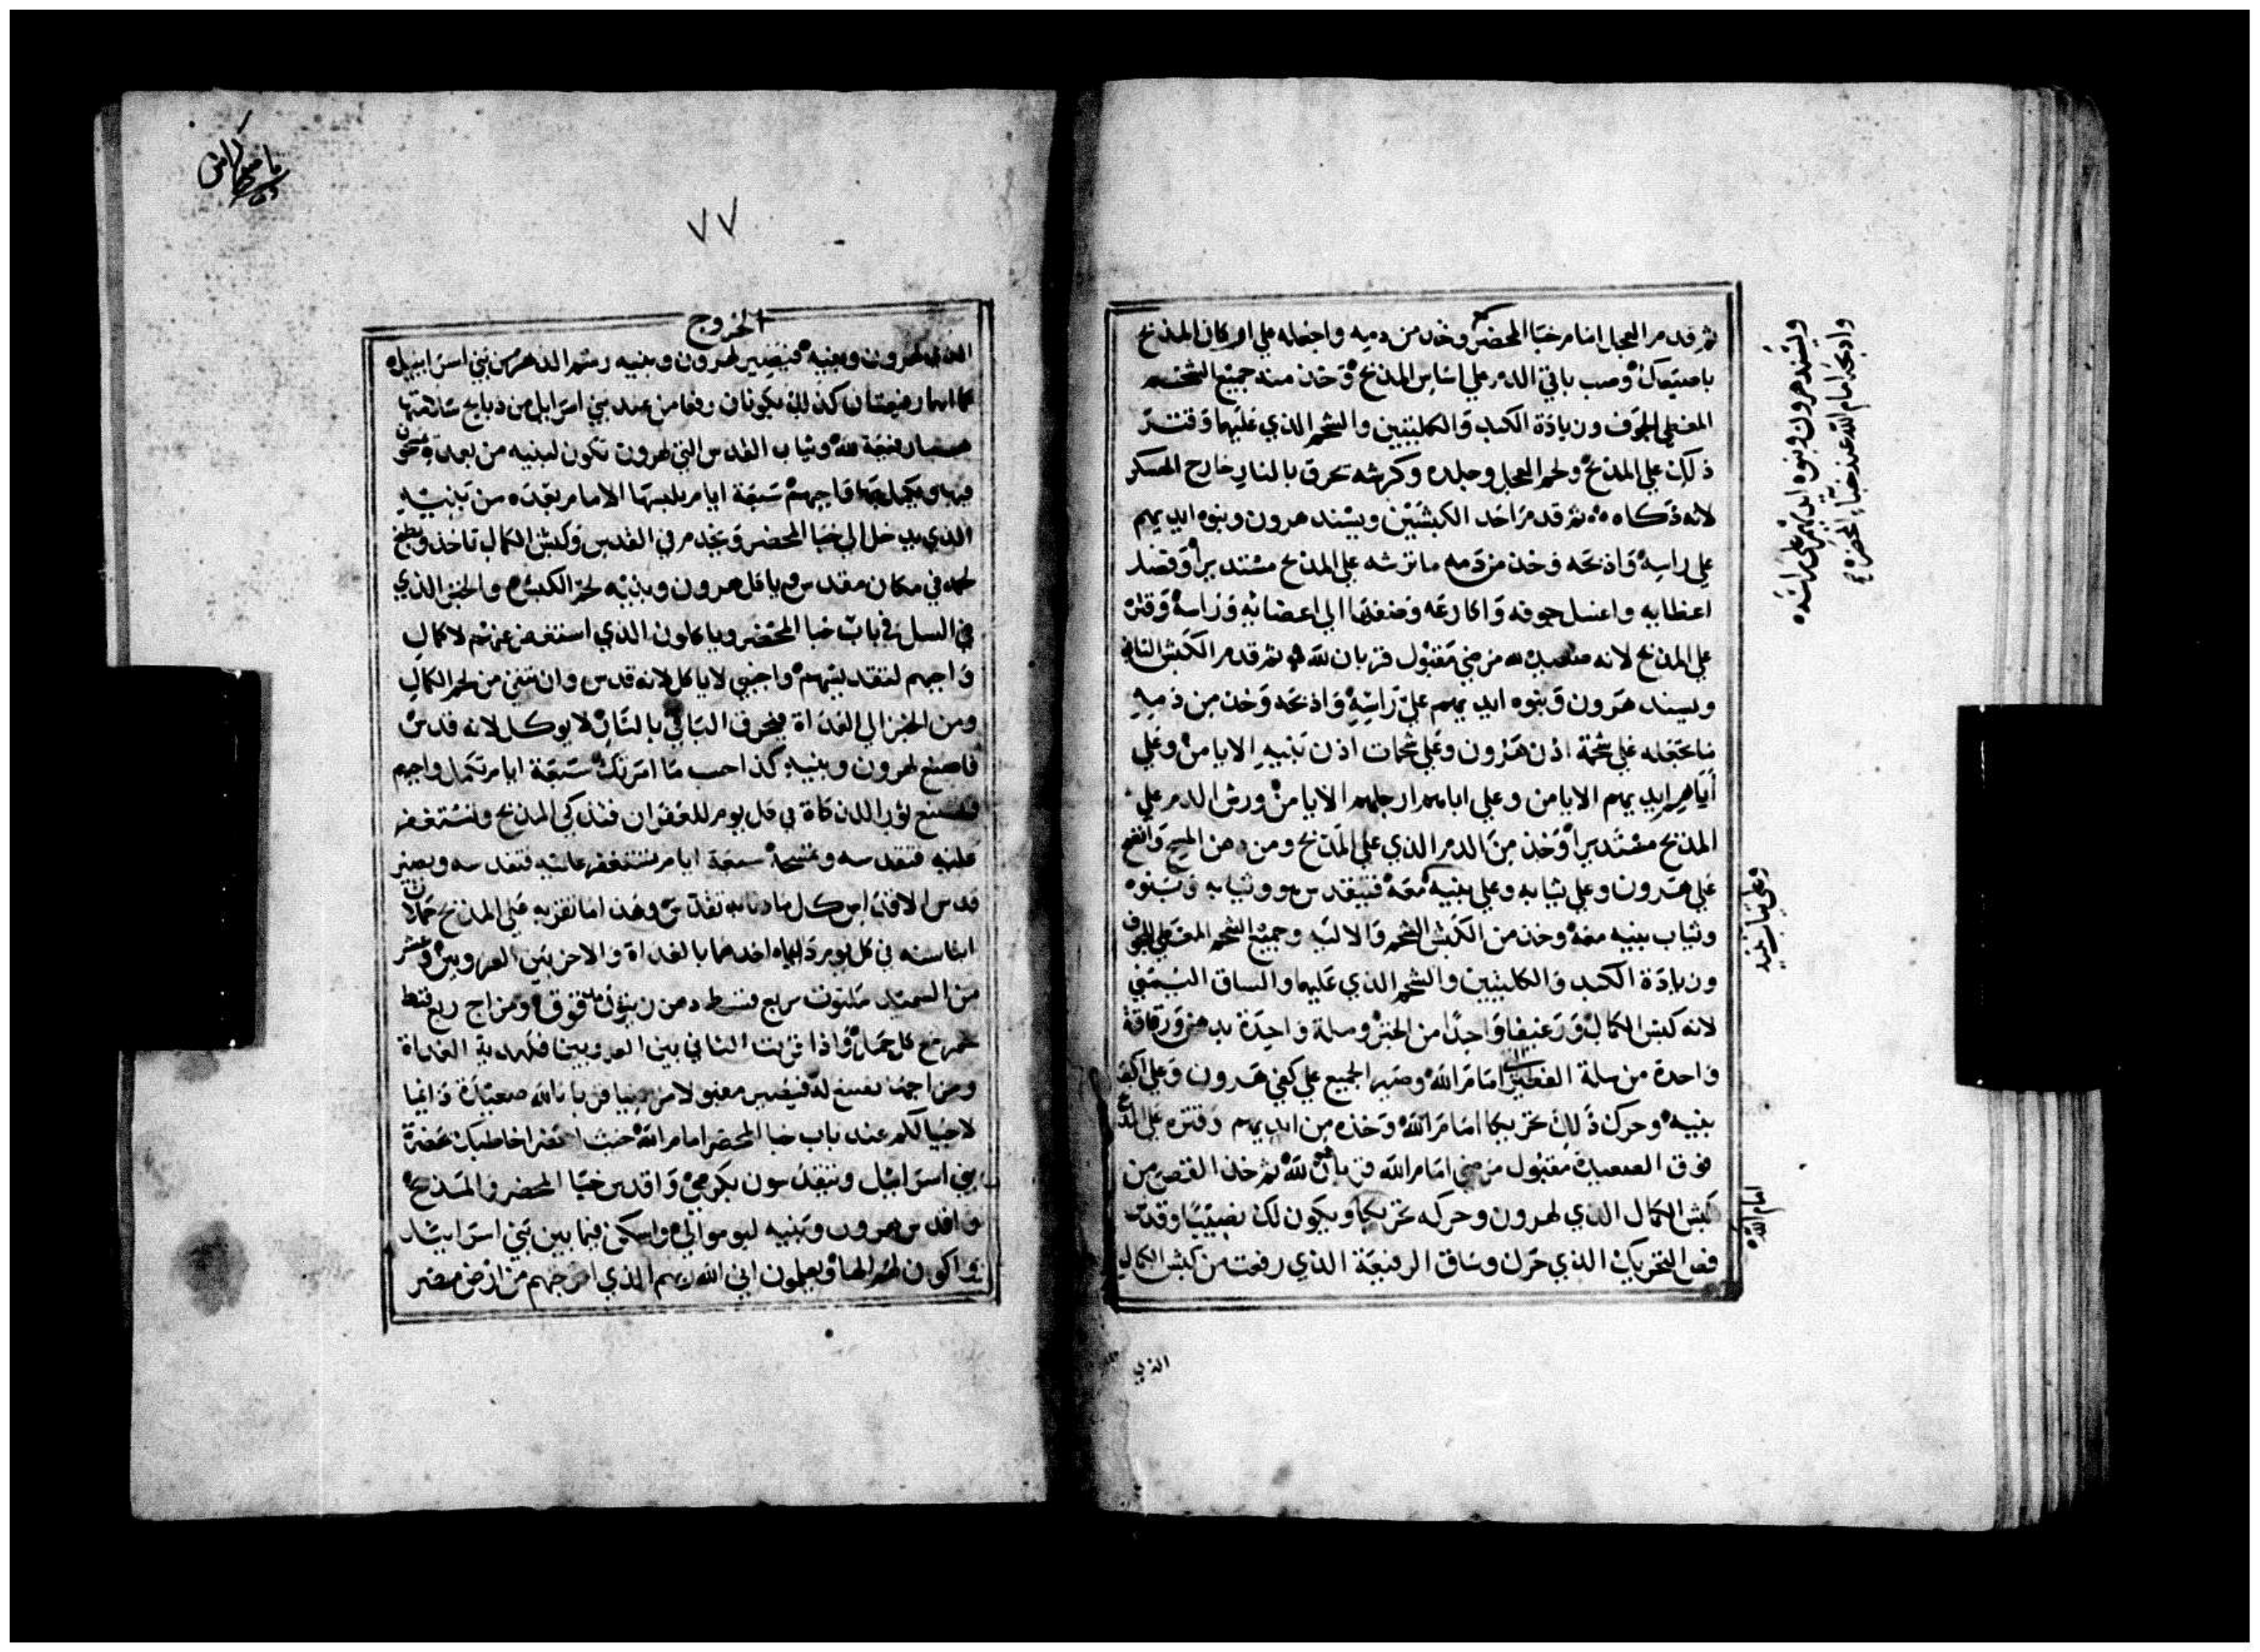 ثم قدم العجل امام خبا المحضر وخذ من دمه واجعله علي اركان المذبح
باصبعك وصب باقي الدم علي اساس المذبح وخذ منه جميع الشحم
المغطي الجوف وزيادة الكبد والكليتين والشحم الذي عليهما وقتر
ذلك علي المذبح ولحم العجل وجلده وكرشه تحرق بالنار خارج العسكر
لانه ذكاه ثم قدم احد الكبشين ويسند هرون وبنوه ايديهم
علي راسه واذبحه وخذ من دمه ما ترشه علي المذبح مستديرا وفصل
اعظايه واغسل جوفه واكارعه وضعها الي اعضائه وراسه وقتره
علي المذبح لانه صعيده مرضي مقبول قربان لله ثم قدم الكبش الثاني
ويسند هرون وبنوه ايديهم علي راسه واذبحه وخذ من دمه
ما تجعله علي شحمة اذن هرون وعلي شحمات اذن بنيه الايامن وعلي
اباهم ايديهم الايامن وعلي اباهم ارجلهم الايامن ورش الدم علي
المذبح مستديرا وخذ من الدم الذي علي المذبح ومن دهن المسح وانضح
علي هرون وعلي ثيابه وعلي بنيه معه فيتقدس هو وثيابه وبنوه
وثياب بنيه معه وخذ من الكبش الشحم والاليه وجميع الشحم المغطي الجوف
وزيادة الكبد والكليتين والشحم الذي عليهما والساق اليمني
لانه كبش الكمال ورغيفا واحدا من الخبز وسلة واحدة بدهن ورقاقة
واحدة من سلة الفطير امام الله وصير الجميع علي كفي هرون وعلي اكف
بنيه وحرك ذلك تحريكا امام الله وخذه من ايديهم وقتره علي المذبح
فوق الصعيدة مقبول مرضي امام الله قربان هو لله ثم خذ القص من
كبش الكمال الذي لهرون وحركه تحريكا ويكون لك نصيبا وقدس
قص التحريك الذي حرك وساق الرفيعة الذي رفعت من كبش الكمال
ويسند هرون وبنوه ايديهم علي راسه
واذبحه امام الله عند خباء المحضر
وعلي ثياب بنيه
امام الله
الذي
٧٧
الخروج
الذي لهرون وبنيه فيصير لهرون وبنيه رسم الدهر من بني اسراييل
كما انهما رفيعتان كذلك يكونان رفعا من عند بني اسرايل من ذبايح سلامتها
رفيعة لله وثياب القدس التي لهرون تكون لبنيه من بعده
فيها ويكمل بها واجبهم سبعة ايام يلبسها الامام بعده من بنيه
الذي يدخل الي خبا المحضر ويخدم في القدس وكبش الكمال تاخذ وتطبخ
لحمه في مكان مقدس وياكل هرون وبنيه لحم الكبش والخبز الذي
في السل في باب خبا المحضر وياكلون الذي استغفر عنهم لاكمال
واجبهم لتقديسهم واجنبي لا ياكل لانه قدس وان بقي من لحم الكمال
ومن الخبز الي الغداة فيحرق الباقي بالنار لا يوكل لانه قدس
فاصنع لهرون وبنيه كذا حسب ما امرتك سبعة ايام تكمل واجبهم
فتصنع ثور الذكاة في كل يوم للغفران فتذكي المذبح وتستغفر
عليه فتقدسه وتمسحه سبعة ايام تستغفر عليه فتقدسه ويصير
قدس الاقداس كل ما دنا به تقدس وهذا ما تقربه علي المذبح حملان
ابنا سنه في كل يوم دايما احدهما بالغداة والاخر بين الغروبين وعشر
من السميد ملتوت بربع قسط دهن زيتون مدقوق ومزاج ربع قسط
خمر مع كل حمل واذا قربت الثاني بين الغروبين فكهدية الغداة
ومزاجها تصنع له فيصير مقبولا مرضيا قربانا لله صعيدة دايما
لاجيالكم عند باب خبا المحضر امام الله حيث احضر اخاطبك بحضرة
بني اسراييل وتتقدسون بكرمي واقدس خبا المحضر والمذبح
واقدس هرون وبنيه ليوموا لي واسكن فيما بين بني اسراييل
واكون لهم الها ويعلمون اني الله ربهم الذي اخرجهم من ارض مصر